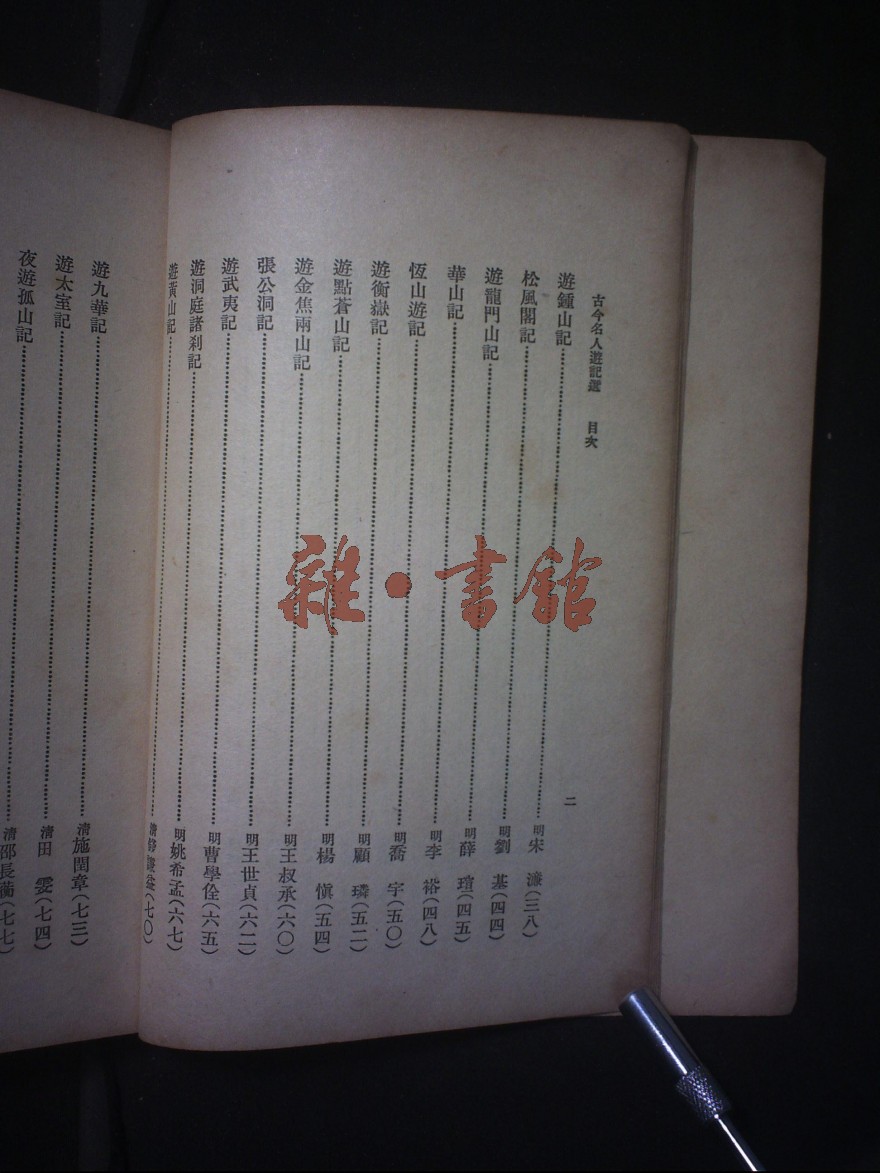 古今名人遊記選　目次
二
遊鍾山記……明宋　濂(三八)
松風閣記……明劉　基(四四)
遊龍門山記……明薛　瑄(四五)
華山記……明李　裕(四八)
恆山遊記……明喬　宇(五〇)
遊衡嶽記……明顧　璘(五二)
遊點蒼山記……明楊　愼(五四)
遊金焦兩山記……明王叔承(六〇)
張公洞記……明王世貞(六二)
遊武夷記……明曹學佺(六五)
遊洞庭諸剎記……明姚希孟(六七)
遊黃山記……清錢謙益(七〇)
遊九華記……清施閏章(七三)
遊太室記……清田　雯(七四)
夜遊孤山記……清邵長蘅(七七)
雜·書館